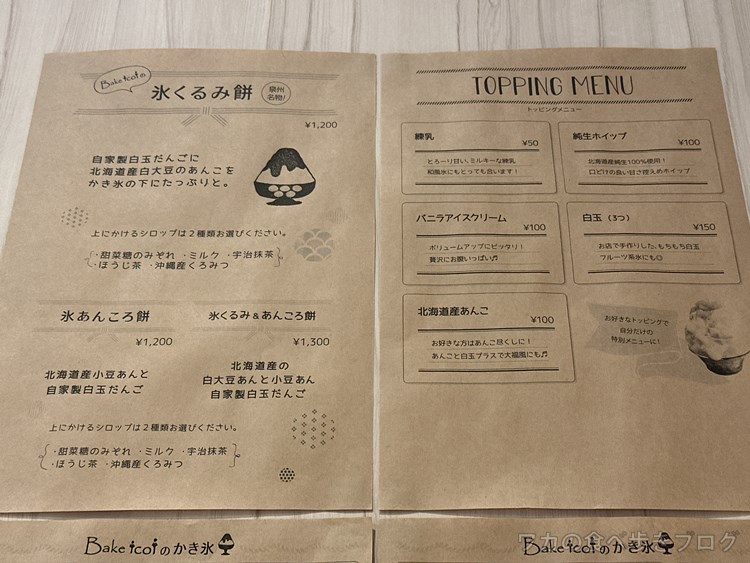 Bake icoiの
氷くるみ餅
泉州
名物!
¥1,200
自家製白玉だんごに
北海道産白大豆のあんこを
かき氷の下にたっぷりと。
上にかけるシロップは2種類お選びください。
・甜菜糖のみぞれ ・ミルク ・宇治抹茶
・ほうじ茶 ・沖縄産くろみつ
氷あんころ餅
¥1,200
北海道産小豆あんと
自家製白玉だんご
氷くるみ&あんころ餅
¥1,300
北海道産の
白大豆あんと小豆あん
自家製白玉だんご
上にかけるシロップは2種類お選びください。
・甜菜糖のみぞれ ・ミルク ・宇治抹茶
・ほうじ茶 ・沖縄産くろみつ
TOPPING MENU
トッピングメニュー
練乳
¥50
とろーり甘い、ミルキーな練乳
和風氷にもとっても合います!
純生ホイップ
¥100
北海道産純生100%使用!
口どけの良い甘さ控えめホイップ
バニラアイスクリーム
¥100
ボリュームアップにピッタリ!
贅沢にお腹いっぱい♬
白玉(3つ)
¥150
お店で手作りした、もちもち白玉
フルーツ系氷にも◎
北海道産あんこ
¥100
お好きな方はあんこ尽くしに!
あんこと白玉プラスで大福風にも♬
お好きなトッピングで
自分だけの
特別メニューに!
Bake icoiのかき氷
Bake icoiのかき氷
ワカの食べ歩きブログ